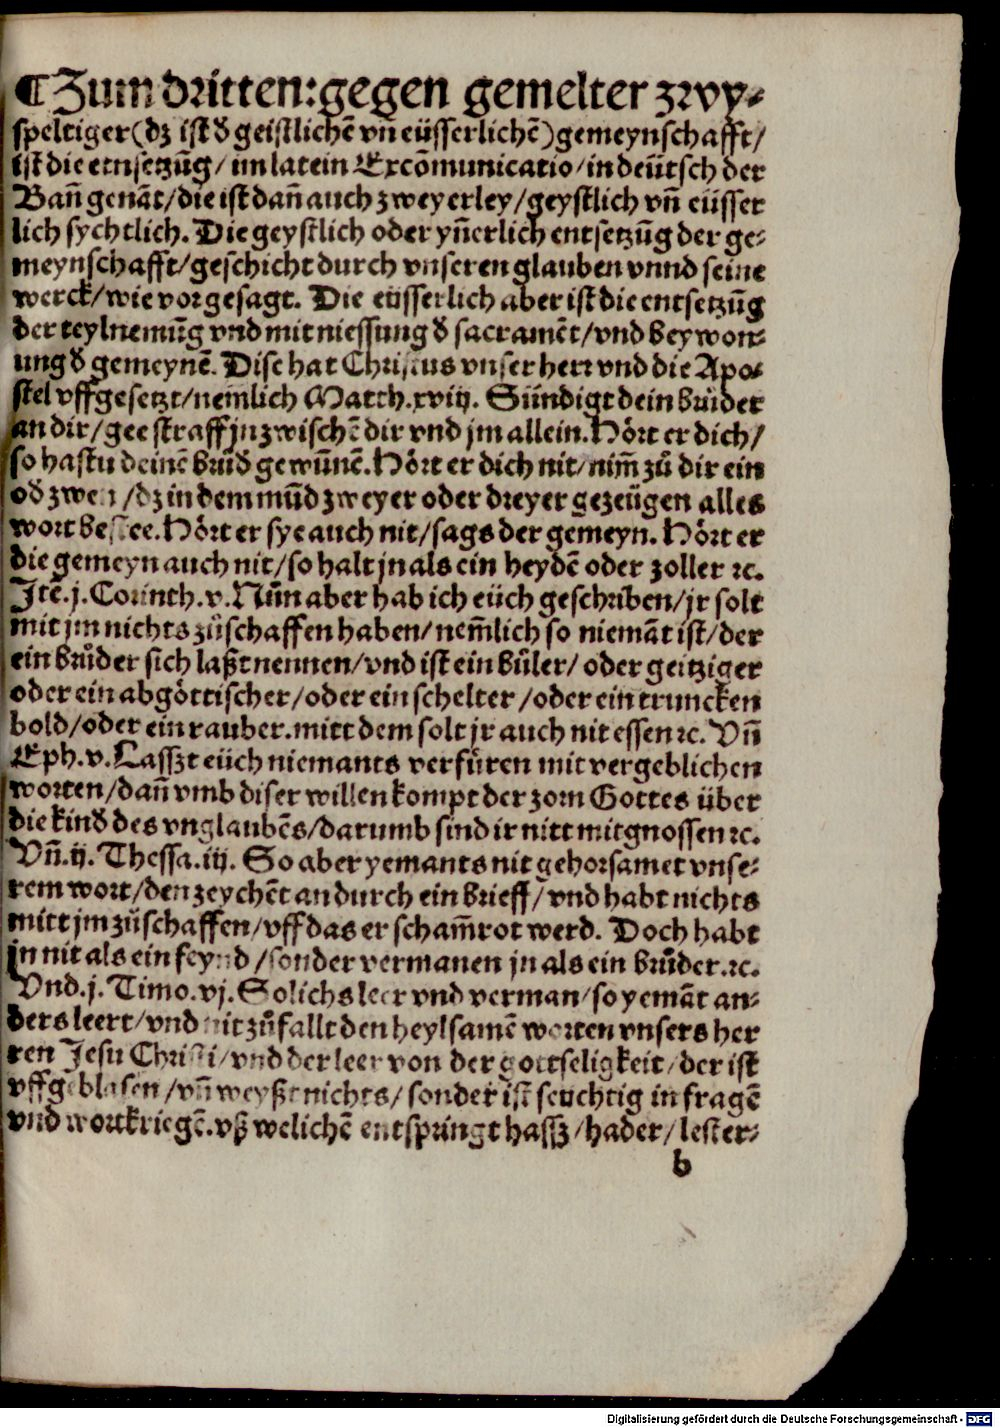 ¶ Zum dritten: gegen gemelter zwy⸗
speltiger (dz ist d̕ geistlichē vn̄ eüsserlichē) gemeynschafft/
ist die entsetzūg/ im latein Excōmunicatio/ in deütsch der
Ban̄ genāt/ die ist dan̄ auch zweyerley/ geystlich vn̄ eüsser
lich sychtlich. Die geystlich oder yn̄erlich entsetzūg der ge⸗
meynschafft/ geschicht durch vnseren glauben vnnd seine
werck/ wie vorgesagt. Die eüsserlich aber ist die entsetzūg
der teylnemūg vnd mit niessung d̕ sacramēt/ vnd beywon⸗
ung d̕ gemeynē. Dise hat Christus vnser herr vnd die Apo⸗
stel vffgesetzt/ nem̄lich Matth. xviij. Sündigt dein brůder
an dir/ gee straff jn zwischē dir vnd jm allein. Hört er dich/
so hastu deinē brůd̕ gewūnē. Hört er dich nit/ nim̄ zů dir ein
od̕ zwen/ dz in dem mūd zweyer oder dreyer gezeügen alles
wort bestee. Hört er sye auch nit/ sags der gemeyn. Hört er
die gemeyn auch nit/ so halt jn als ein heydē oder zoller ꝛc.
Itē. j. Corinth. v. Nūn aber hab ich eüch geschriben/ jr solt
mit jm nichts zůschaffen haben/ nem̄lich so niemāt ist/ der
ein brůder sich laßt nennen/ vnd ist ein bůler/ oder geitziger
oder ein abgöttischer/ oder ein schelter/ oder ein truncken
bold/ oder ein rauber. mitt dem solt jr auch nit essen ꝛc. Vn̄
Eph. v. Lasszt eüch niemants verfüren mit vergeblichen
worten/ dan̄ vmb diser willen kompt der zorn Gottes über
die kind̕ des vnglaubēs/ darumb sind ir nitt mitgnossen ꝛc.
Vn̄. ij. Thessa. iij. So aber yemants nit gehorsamet vnse⸗
rem wort/ den zeychēt an durch ein brieff/ vnd habt nichts
mitt jm zůschaffen/ vff das er scham̄rot werd. Doch habt
jn nit als ein feynd/ sonder vermanen jn als ein brůder. ꝛc.
Vnd. j. Timo. vj. Solichs leer vnd verman/ so yemāt an⸗
ders leert/ vnd nit zůfallt den heylsamē worten vnsers her
ren Jesu Christi/ vnd der leer von der gottseligkeit/ der ist
vffgeblasen/ vn̄ weyßt nichts/ sonder ist seuchtig in fragē
vnd wortkriegē. vß welichē entspringt hassz/ hader/ lester⸗
b
Digitalisierung gefördert durch die Deutsche Forschungsgemeinschaft - DFG